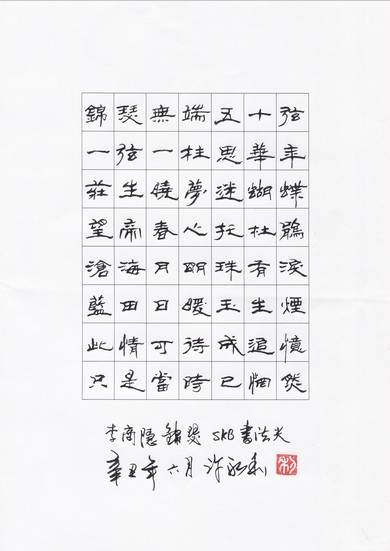 錦瑟無端五十弦
一弦一柱思華年
莊生曉夢迷蝴蝶
望帝春心托杜鵑
滄海月明珠有淚
藍田日暖玉生煙
此情可待成追憶
只是當時已惘然
李商隱 錦瑟 SKB 書法尖
辛丑年六月 許